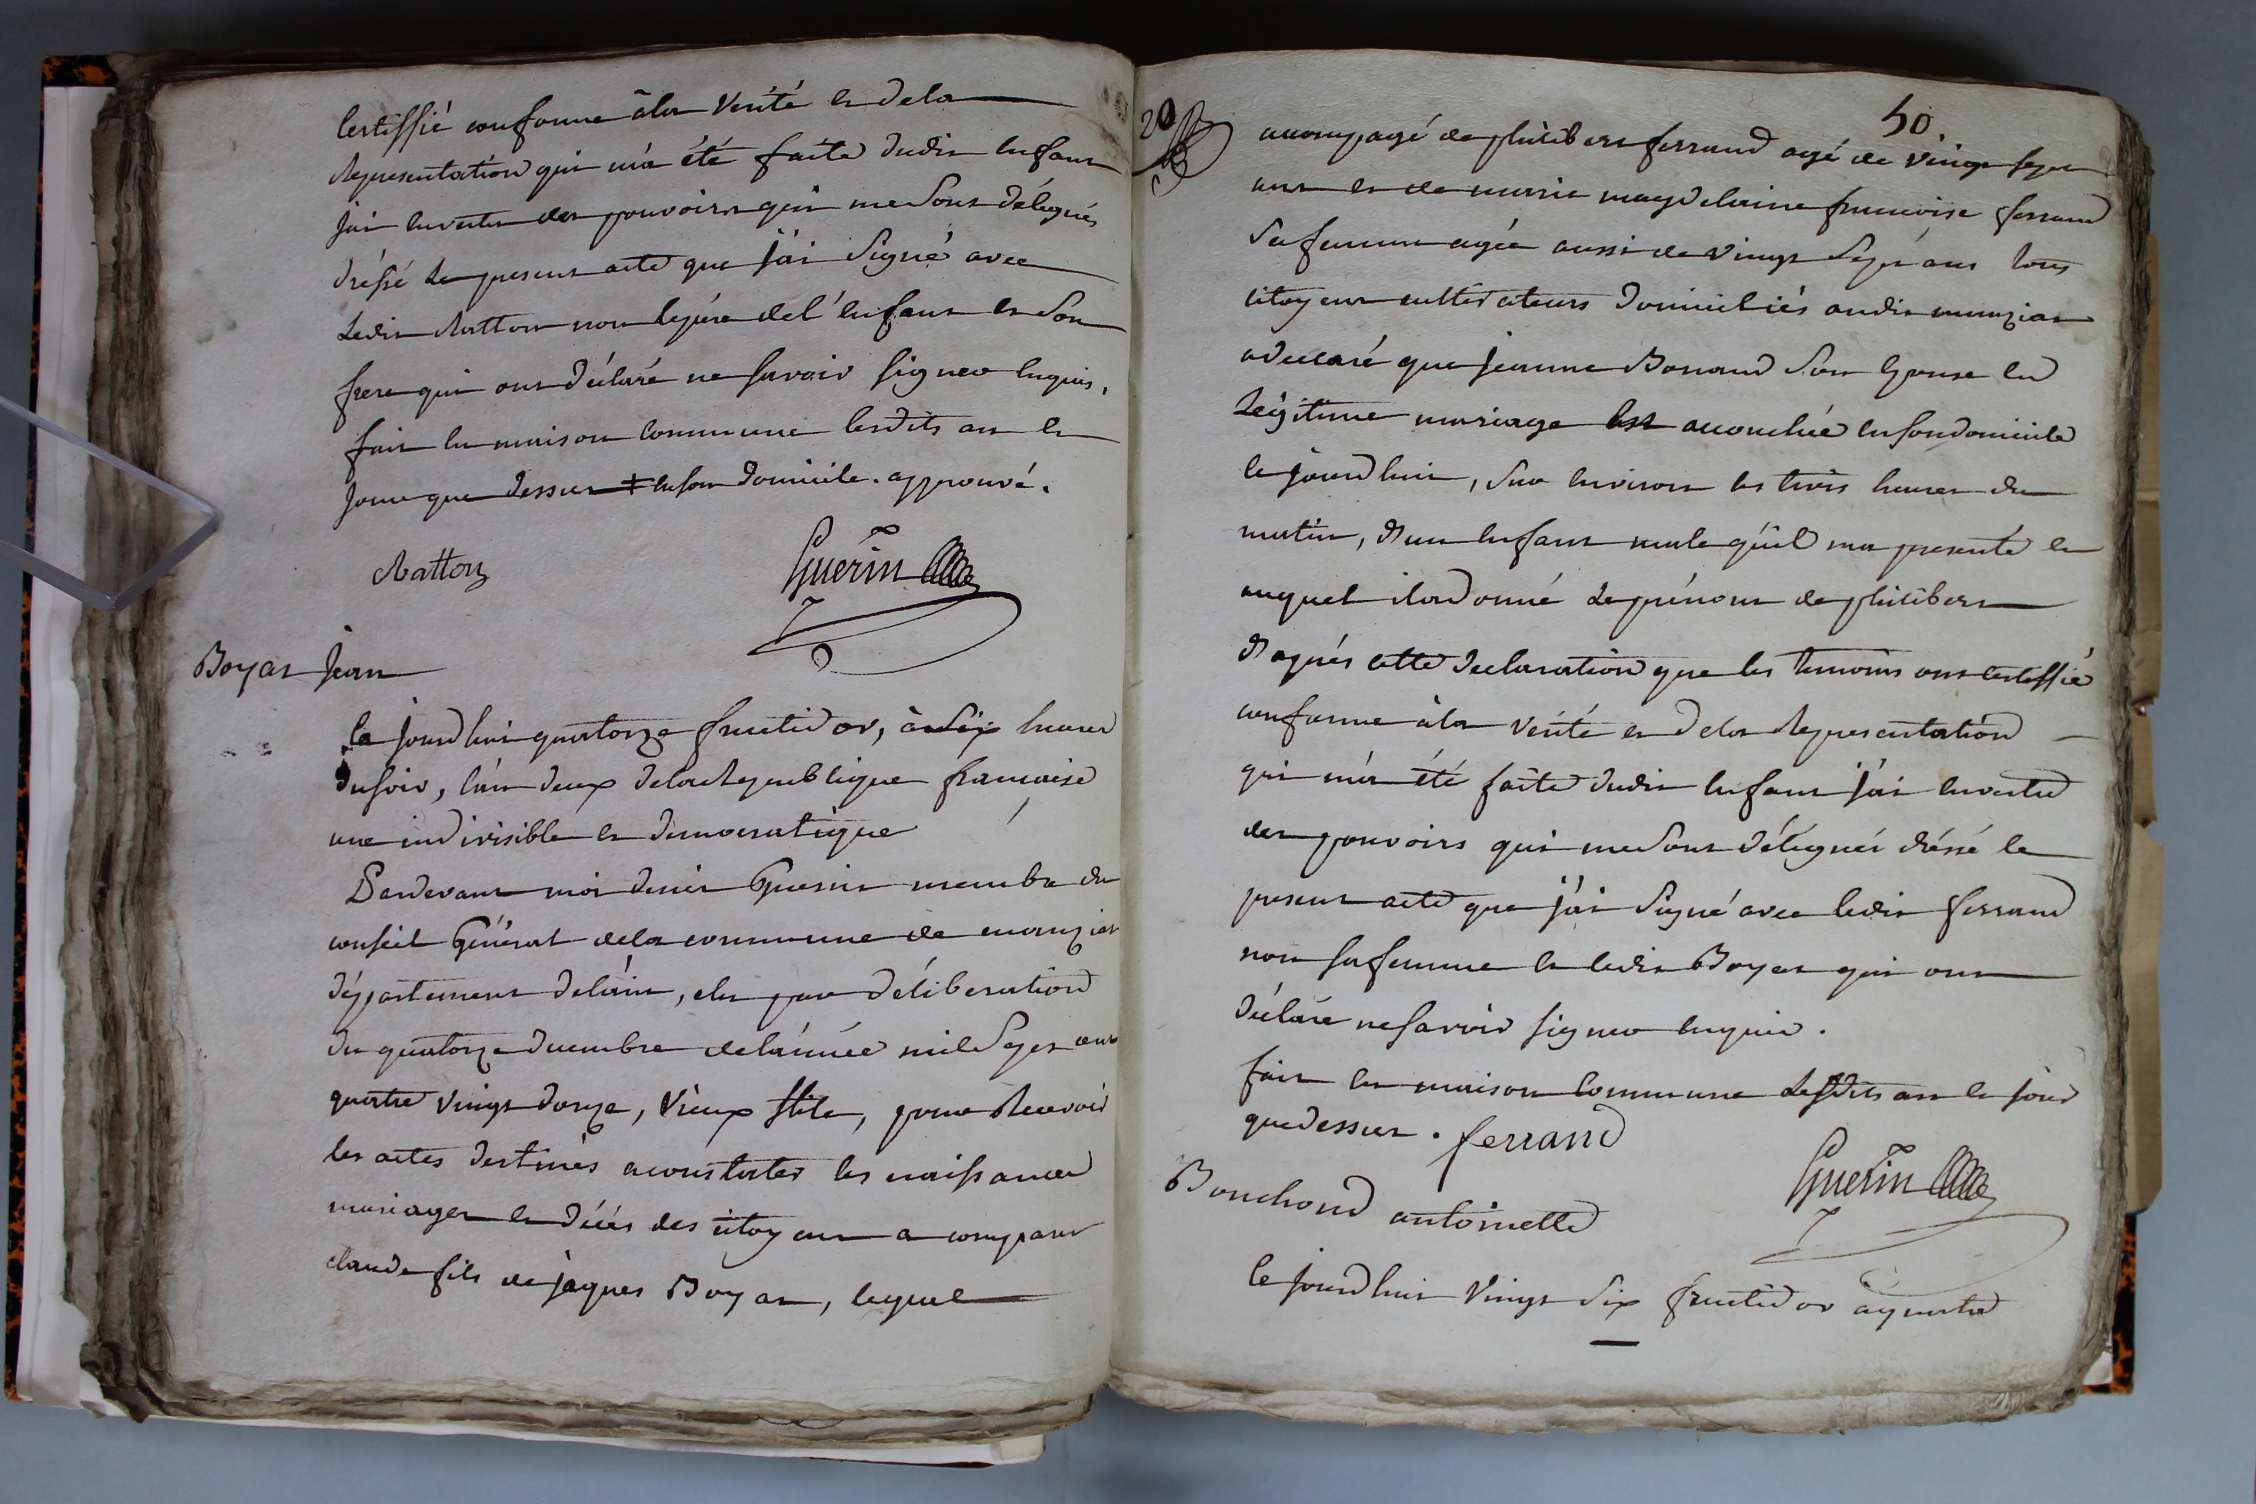 Certiffié conforme à la Vérité et de la
Representation qui m'a été faite dudit Enfant
J'ai En vertu des pouvoirs qui me Sont délegués
dréssé Le present acte que j'ai Signé avec
Ledit Ratton non le père de l'Enfant et Son
frere qui ont déclaré ne Savoir Signer Enquis,
fait En maison Commune Lesdits an et
Jour que dessus ‡ en son domicile. approuvé.
Ratton
Guerin
Boyat Jean
Ce Jourd'hui quatorze fructidor, à Six heures
du Soir, l'an deux de la Republique francaise
une indivisible et democratique
Pardevant moi denis Guerin membre du
conseil Général de la commune de manziat
département de l'ain, elu par déliberation
du quatorze decembre de l'année mil Sept cent
quatre vingt douze, vieux Stile, pour Recevoir
les actes destinés a constater les naissances
mariages et décés des citoyens a comparu
claude fils de jaques Boyat, lequel
20
50.
accompagé de philibert ferrand agé de vingt sept
ans et de marie magdelaine francoise ferrand
Sa femme agée aussi de vingt Sept ans tous
citoyens cultivateurs domiciliés audit manziat
a declaré que jeanne Bonand Son Epouse En
Légitime mariage Est accouchée En Son domicile
Ce jourd'hui, Sur Environ les trois heures du
matin, d'un Enfant male qu'il ma presenté et
auquel il a donné Le prénom de philibert
D'aprés cette declaration que les temoins ont certiffié
conforme à la Vérité et de la Representation
qui m'a été faite dudit Enfant j'ai En vertu
des pouvoirs qui me Sont délegués dréssé le
present acte que j'ai Signé avec ledit ferrand
non Sa femme et ledit Boyat qui ont
déclaré ne Savoir Signer Enquis.
fait En maison Commune Lesdits an et Jour
que dessus. ferrand
Guerin
Bouchoud antoinette
Ce Jourd'hui Vingt Six fructidor à quatre